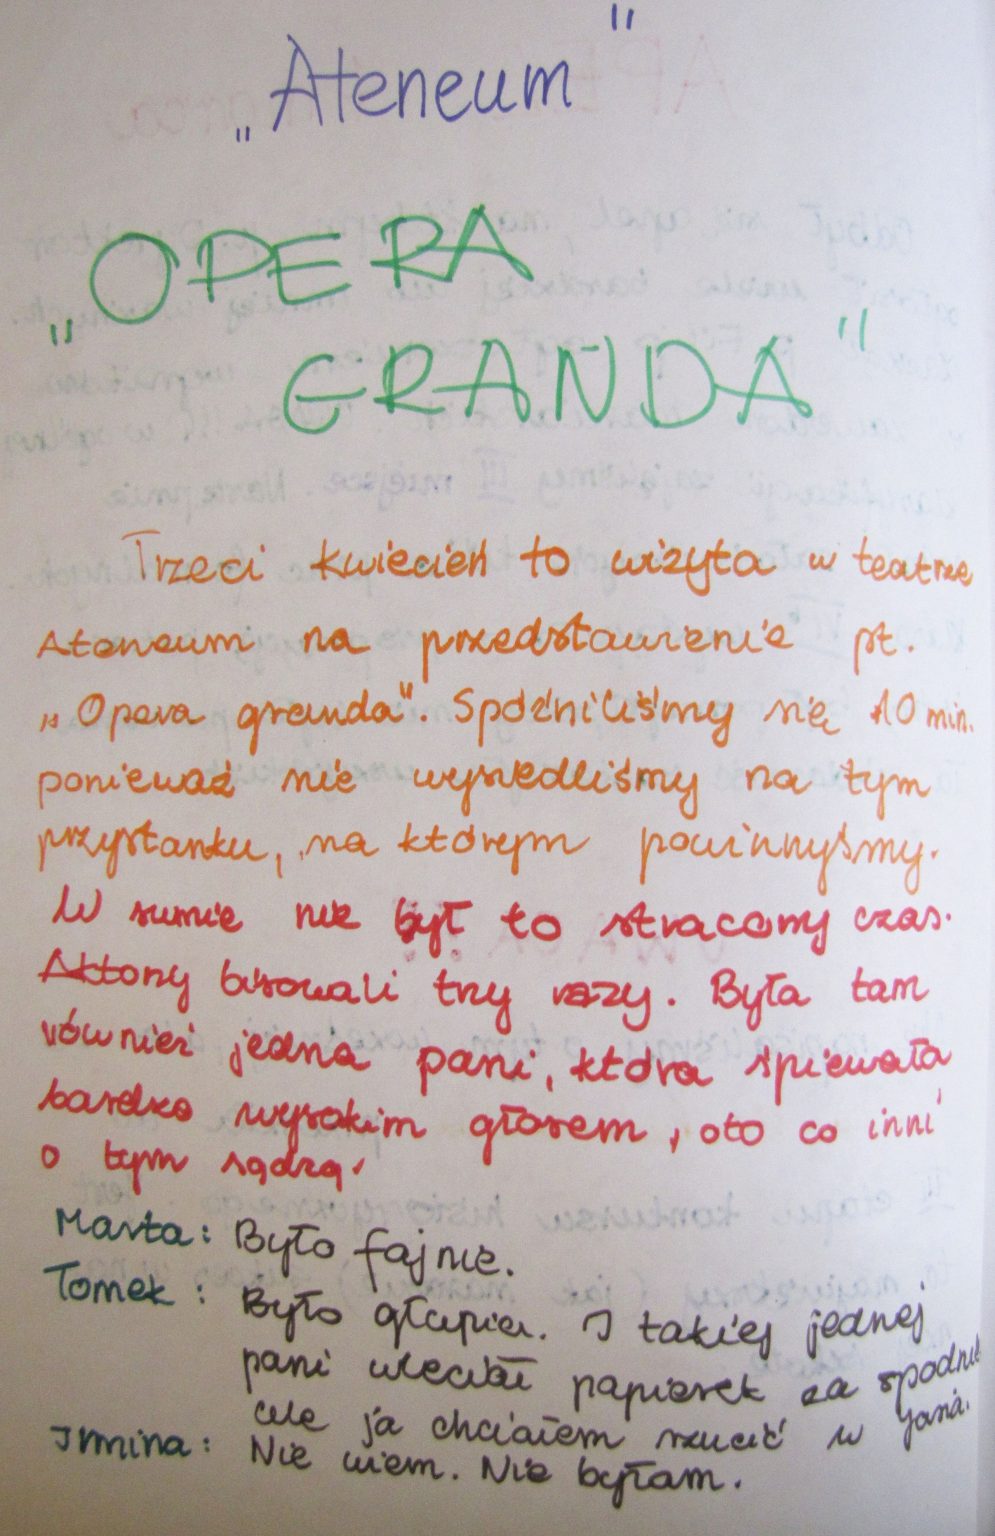 „Ateneum"
„OPERA
GRANDA"
Trzeci kwiecień to wizyta w teatrze
Ateneum na przedstawienie pt.
„Opera granda". Spóźniliśmy się 10 min.
ponieważ nie wysiedliśmy na tym
przystanku, na którym powinnyśmy.
W sumie nie był to stracony czas.
Aktorzy bisowali trzy razy. Była tam
również jedna pani, która śpiewała
bardzo wysokim głosem, oto co inni
o tym sądzą.
Marta: Było fajnie.
Tomek: Było głupie. I takiej jednej
pani wleciał papierek za spodnie
ale ja chciałem rzucić w
Irmina: Nie wiem. Nie byłam.